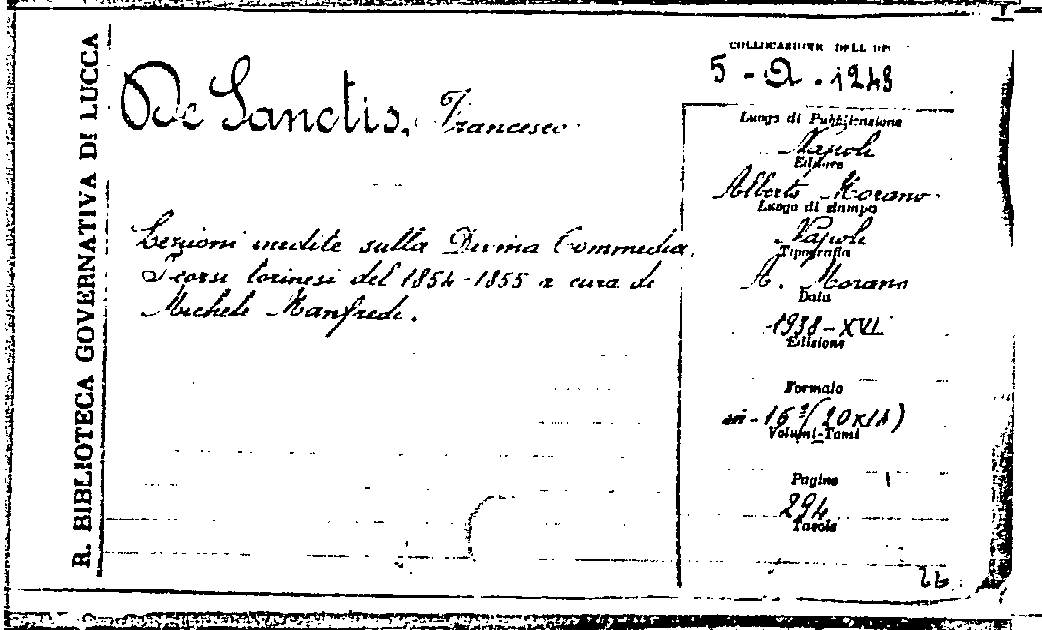 R. BIBLIOTECA GOVERNATIVA DI LUCCA
De Sanctis, Francesco
Lezioni inedite sulla Divina Commedia.
I corsi torinesi del 1854-1855 a cura di
Michele Manfredi.
COLLOCAZIONE DELL'OP
5 - Q - 1248
Luogo di Pubblicazione
Napoli
Editore
Alberto Morano
Luogo di stampa
Napoli
Tipografia
A. Morano
Data
1938-XVI
Edizione
Formato
in-16° (20x14)
Volumi-Tomi
Pagine
294
Tavole